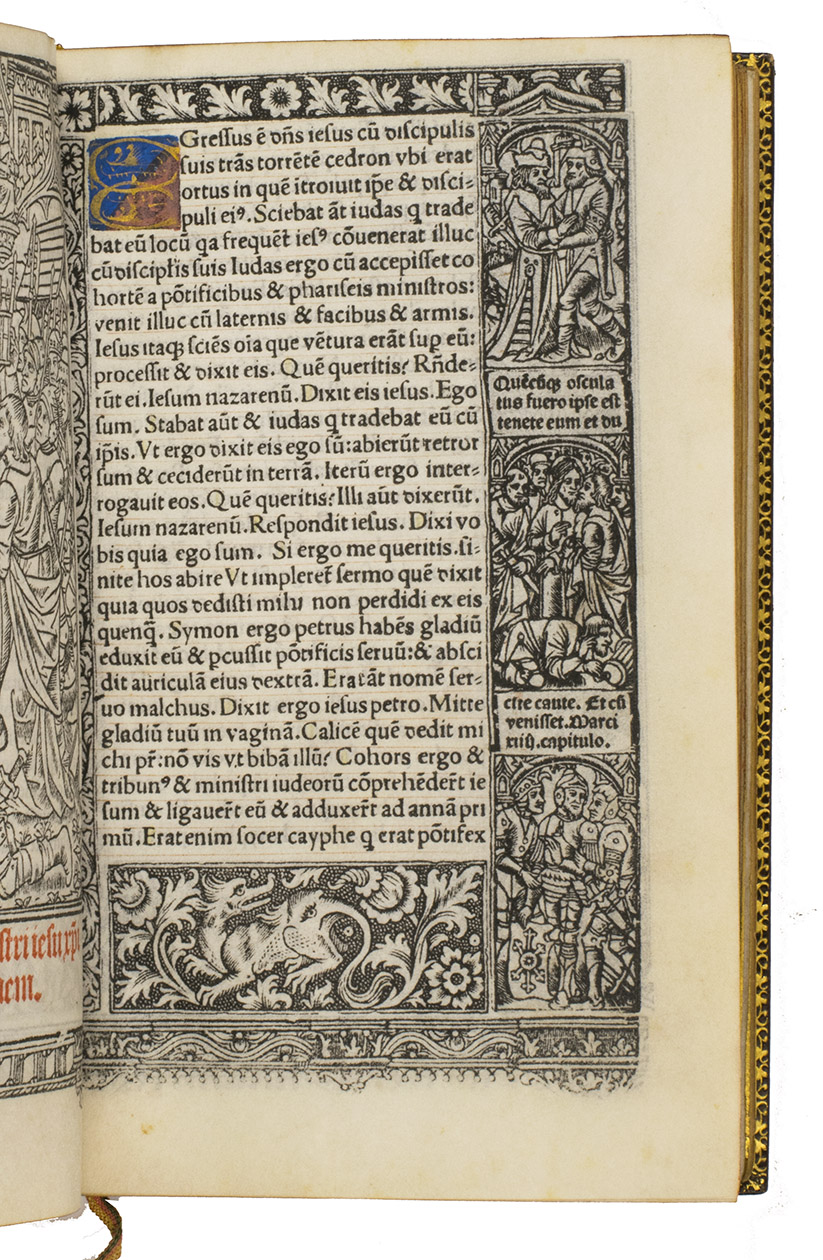 EGressus ē dñs iesus cū discipulis
suis trãs torrētē cedron vbi erat
ortus in quē ītroiuit ip̄e & disci⸗
puli eiꝰ. Sciebat āt iudas q trade
bat eū locū qa frequēt̄ iesꝰ cōuenerat illuc
cū discipl̄is suis Iudas ergo cū accepisset co
hortē a pōtificibus & phariseis ministros:
venit illuc cū laternis & facibus & armis.
Iesus itaqꝫ sciēs oīa que vētura erãt sup eū:
processit & dixit eis. Quē queritis? Rñde⸗
rūt ei. Iesum nazarenū. Dixit eis iesus. Ego
sum. Stabat aūt & iudas q tradebat eū cū
ip̄is. Vt ergo dixit eis ego sū: abierūt retror
sum & ceciderūt in terrã. Iterū ergo inter⸗
rogauit eos. Quē queritis? Illi aūt dixerūt.
Iesum nazarenū. Respondit iesus. Dixi vo
bis quia ego sum. Si ergo me queritis. si⸗
nite hos abire Vt impleret̄ sermo quē dixit
quia quos dedisti mihi non perdidi ex eis
quenq̄. Symon ergo petrus habēs gladiū
eduxit eū & ꝑcussit pōtificis seruū: & absci
dit auriculã eius dextrã. Erat āt nomē ser⸗
uo malchus. Dixit ergo iesus petro. Mitte
gladiū tuū in vaginã. Calicē quē dedit mi
chi pr̄: nō vis vt bibã illū? Cohors ergo &
tribunꝰ & ministri iudeorū cōprehēder̄t ie
sum & ligauer̄t eū & adduxer̄t ad annã pri
mū. Erat enim socer cayphe q erat pōtifex
Quēcūqꝫ oscula
tus fuero ipse est
tenete eum et du
cite caute. Et cū
venisset. Marci
xiiij. capitulo.
stri iesu xp̄i
nem.